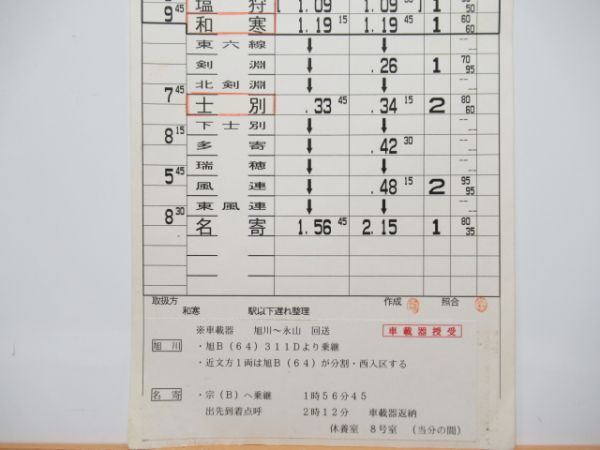 塩 狩 [ 1.09 1.09 ] 1 50
9 45
和 寒 1.19 15 1.19 45 1 60 60
東 六 線 ↓ ↓
剣 淵 ↓ .26 1 70 95
北 剣 淵 ↓ ↓
7 45
士 別 .33 45 .34 15 2 80 60
下 士 別 ↓ ↓
8 15
多 寄 ↓ .42 30
瑞 穂 ↓ ↓
5 45
風 連 ↓ .48 15 2 95 95
東 風 連 ↓ ↓
8 30
名 寄 1.56 45 2.15 1 80 35
取扱方 作成 照合
和寒 駅以下遅れ整理
※車載器 旭川～永山 回送 車載器授受
旭 川 ・旭B(64)311Dより乗継
・近文方1両は旭B(64)が分割・西入区する
名 寄 ・宗(B)へ乗継 1時56分45
出先到着点呼 2時12分 車載器返納
休養室 8号室 (当分の間)